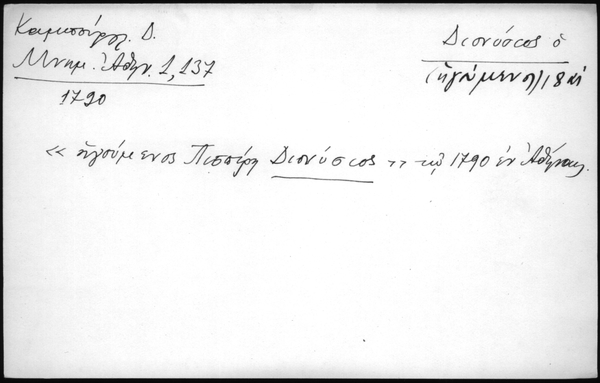 Καμπούρογλ. Δ.
Μνημ. Ἀθην. 1, 137
1790
Διονύσιος ὁ
(ἡγούμενος) 18 αἰ
<< ἡγούμενος Πεντέλη Διονύσιος >> τῷ 1790 ἐν Ἀθήναις.